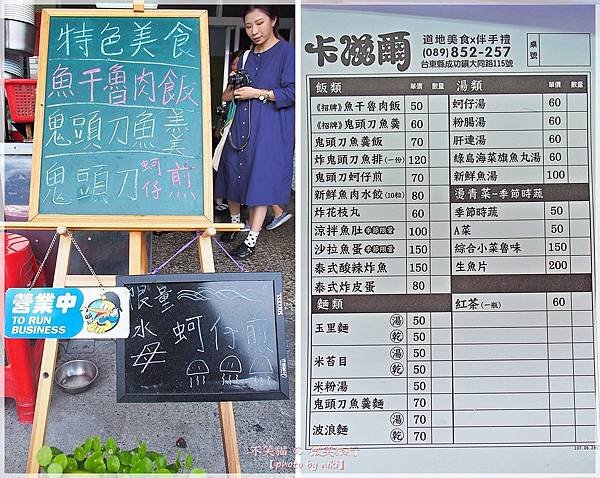 特色美食
魚干魯肉飯
鬼頭刀魚羹
鬼頭刀蚵仔煎
營業中
TO RUN
BUSINESS
限量
水母
蚵仔煎
卡滋爾
道地美食x伴手禮
(089)852-257
台東縣成功鎮大同路115號
桌號
飯類 單價 數量
《招牌》魚干魯肉飯 50
《招牌》鬼頭刀魚羹 60
鬼頭刀魚羹飯 70
炸鬼頭刀魚排(一份) 120
鬼頭刀蚵仔煎 70
新鮮魚肉水餃(10粒) 80
炸花枝丸 60
涼拌魚肚 季節限量 100
沙拉魚蛋 季節限量 150
泰式酸辣炸魚 150
泰式炸皮蛋 80
麵類
玉里麵 湯 50
乾 50
米苔目 湯 50
乾 50
米粉湯 50
鬼頭刀魚羹麵 70
波浪麵 湯 70
乾 70
湯類 單價 數量
蚵仔湯 60
粉腸湯 60
肝連湯 60
綠島海菜旗魚丸湯 60
新鮮魚湯 100
燙青菜-季節時蔬
季節時蔬 50
A菜 50
綜合小菜魯味 150
生魚片 200
紅茶(一瓶) 60
【photo by niki】